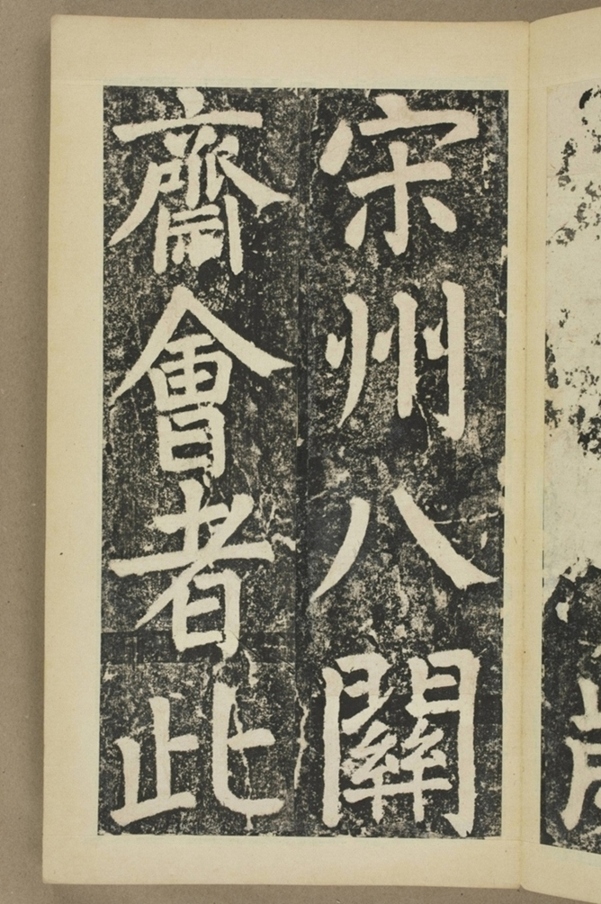 宋州八關
齋會者此